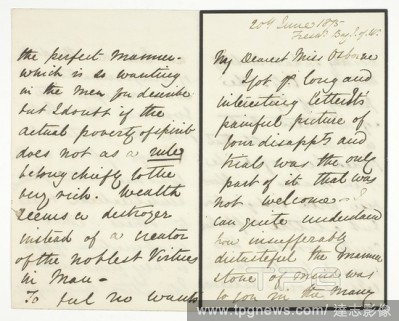 20th June 185
My Dearest Miss Osborne
I got yr long and
interesting letter. Its
painful picture of
your disappts and
trials was the only
part of it that was
not welcome.
I can quite understand
how insufferably
distasteful the manner
& tone of mind was
to you in the many
the perfect manner
which is so wanting
in the men you describe
but I doubt if the
actual poverty of spirit
does not as a rule
belong chiefly to the
very rich. Wealth
seems a destroyer
instead of a creator
of the noblest Virtues
in Man -
To feel no wants
www.tpgnews.com/達志影像